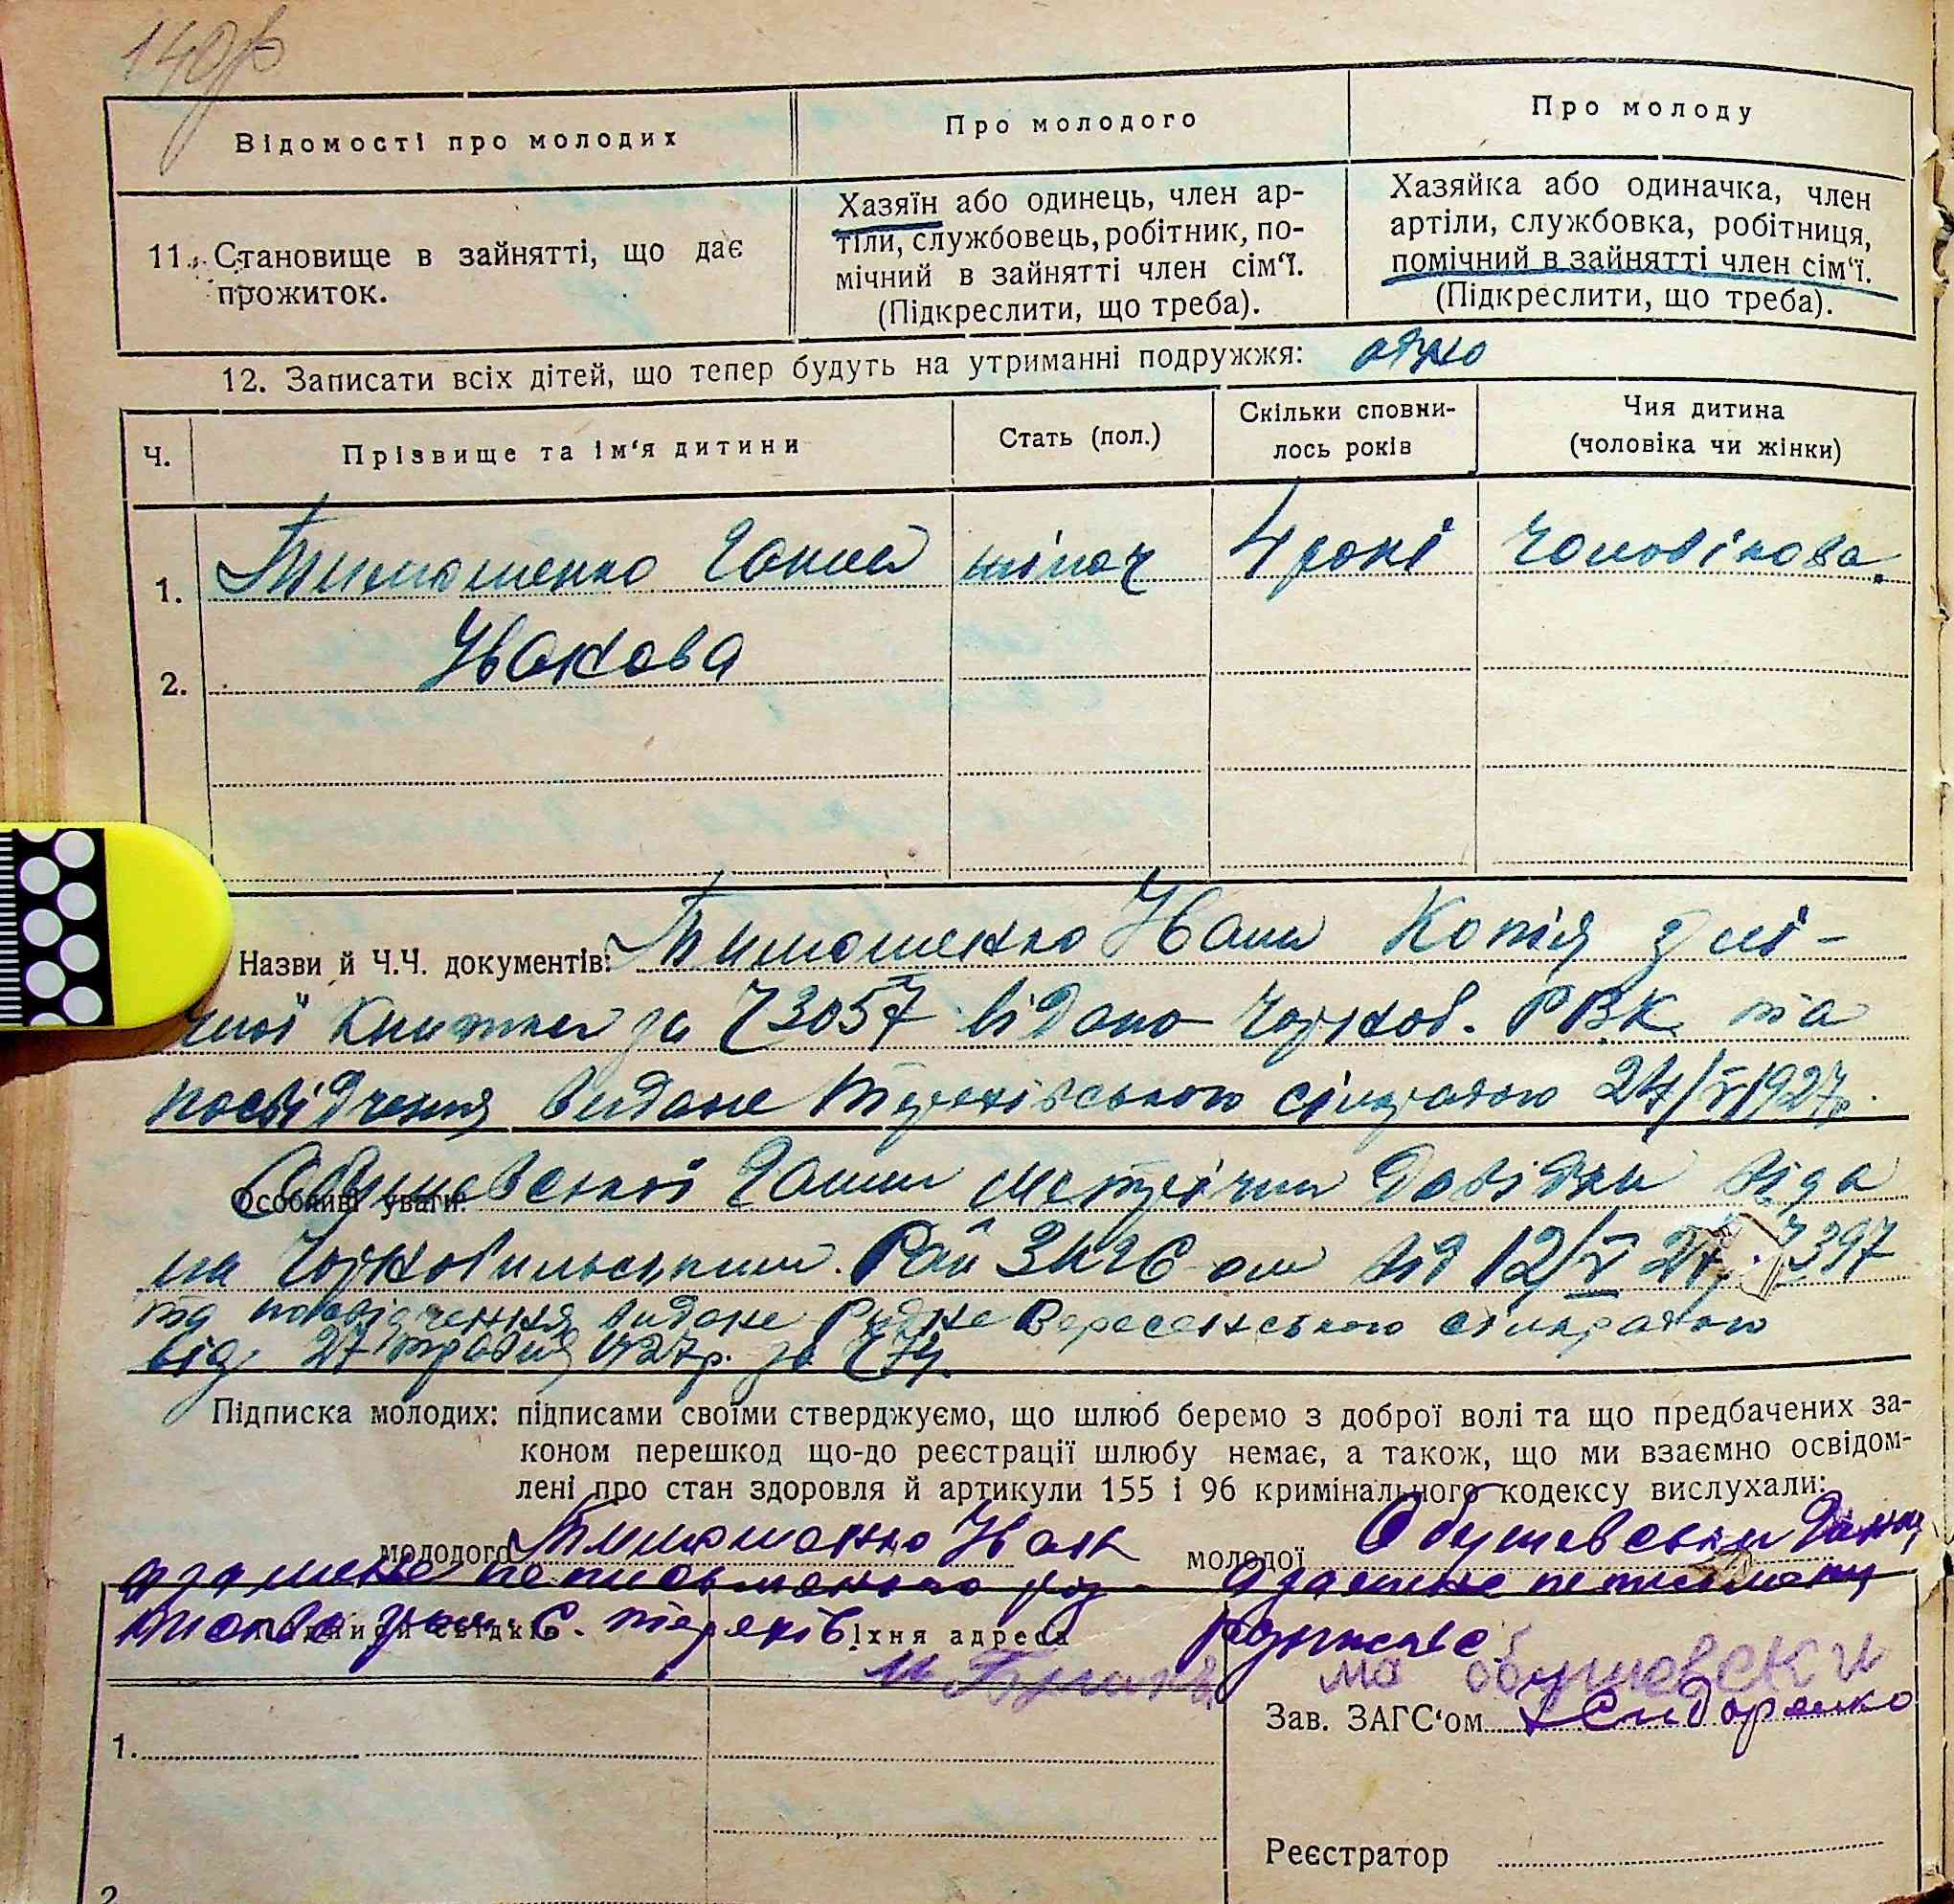 Відомості про молодих
Про молодого
Про молоду
11. Становище в зайнятті, що дає
прожиток.
Хазяїн або одинець, член ар-
тіли, службовець, робітник, по-
мічний в зайнятті член сім'ї.
(Підкреслити, що треба).
Хазяйка або одиначка, член
артіли, службовка, робітниця,
помічний в зайнятті член сім'ї.
(Підкреслити, що треба).
12. Записати всіх дітей, що тепер будуть на утриманні подружжя: одно
Ч.
Прізвище та ім'я дитини
Стать (пол.)
Скільки сповни-
лось років
Чия дитина
(чоловіка чи жінки)
1. Тимошенко Ганна
4 рокі
чоловікова
2. Іванова
Назви й Ч.Ч. документів: Тимошенко Іван Копія з лі-
чної книжки за 73057 відано Чорноб. РВК та
посвідчення видане Терехівською сільрадою 24/V 1927р.
Особливі уваги: Обушевської Ганни метрична довідка віда
на Чорнобильським Рай ЗАГС ом від 12/V 27 397
посвідчення видане Рудне Вересенською сільрадою
від 27 травня 1927р. за
Підписка молодих: підписами своїми стверджуємо, що шлюб беремо з доброї волі та що предбачених за-
коном перешкод що-до реєстрації шлюбу немає, а також, що ми взаємно освідом-
лені про стан здоровля й артикули 155 і 96 кримінального кодексу вислухали:
молодого Тимошенко Іван
молодої Обушевська Ганна
а за неписьменного
а за неписьменну
с. Терехів
Підписи свідків
Їхня адреса
розписався
обушевски
Зав. ЗАГС'ом Сидоренко
1.
Реєстратор
2.